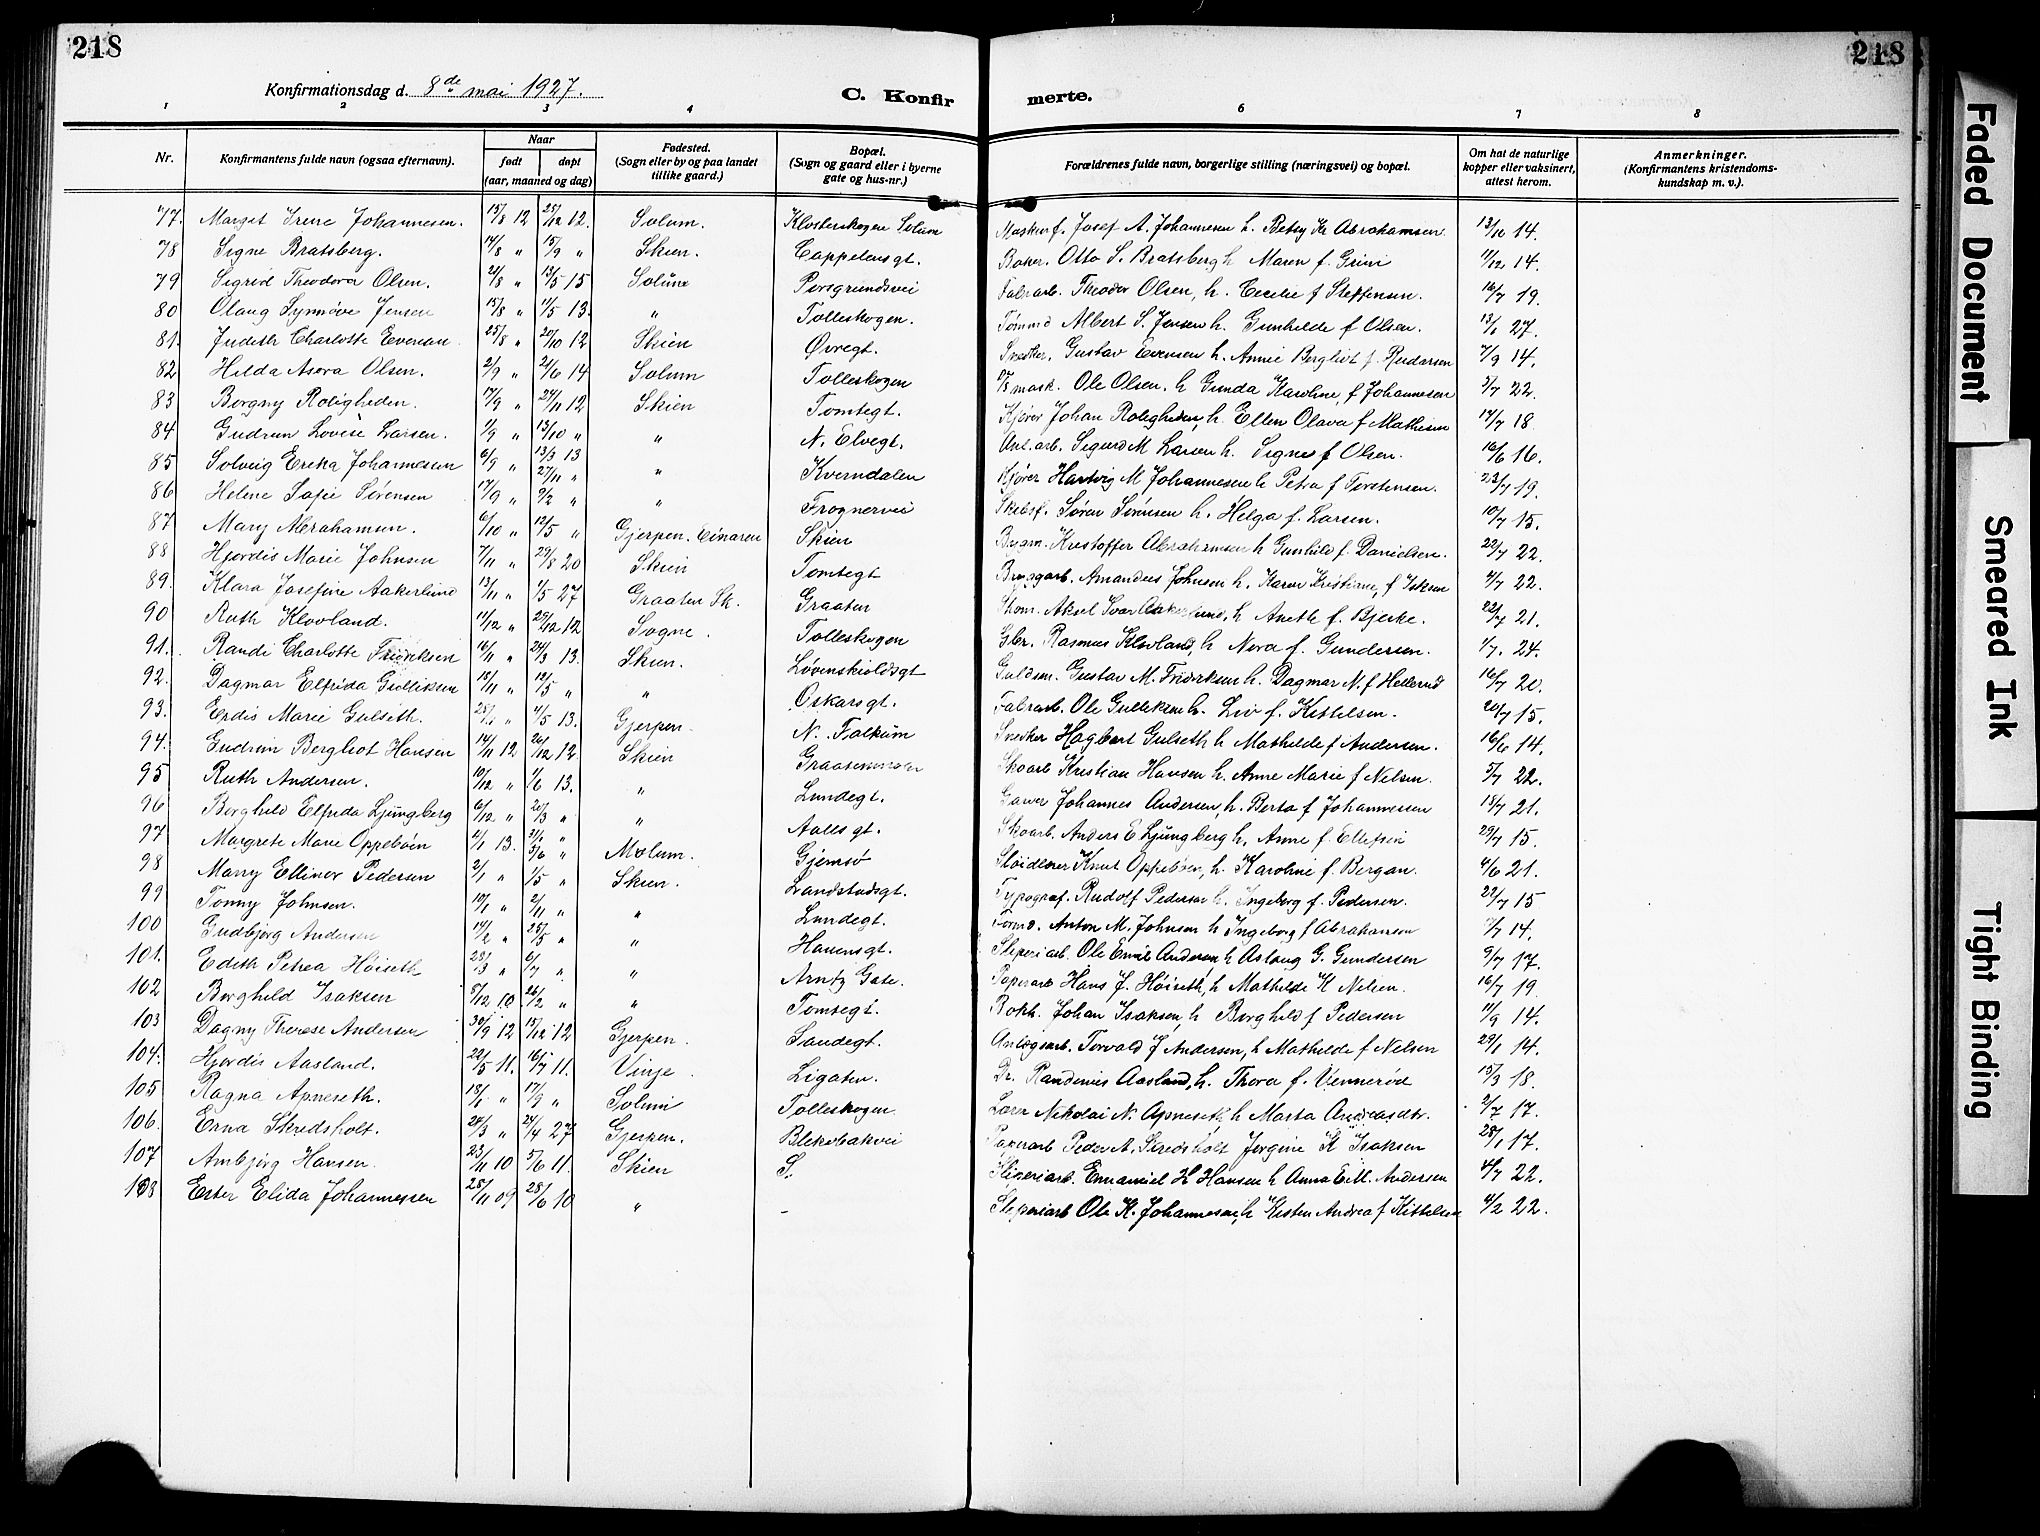 218
218
Konfirmationsdag d. 8de mai 1927.
C. Konfir
merte.
1 2 3 4 6 7 8
Nr.
Konfirmantens fulde navn (ogsaa efternavn).
Naar
født døpt
(aar, maaned og dag)
Fødested.
(Sogn eller by og paa landet
tillike gaard.)
Bopæl.
(Sogn og gaard eller i byerne
gate og hus-nr.)
Forældrenes fulde navn, borgerlige stilling (næringsvei) og bopæl.
Om hat de naturlige
kopper eller vaksinert,
attest herom.
Anmerkninger.
(Konfirmantens kristendoms-
kundskap m. v.).
77. Margit Irene Johannesen. 15/8 12 25/12 12. Solum. Klosterskogen Solum Maskinf. Josef A. Johannesen h. Betsy Kr Abrahamsen. 13/11 14.
78 Signe Bratsberg. 14/8 " 15/9 " Skien. Cappelensgt. Baker. Otto S. Bratsberg h Maren f. Grini 11/12 14.
79 Sigrid Theodora Olsen. 24/8 " 13/5 15 Solum Porsgrundsvei Fabrarb. Theodor Olsen, h. Cecilie f Steffensen. 16/7 19.
80 Olaug Synnøve Jensen 15/8 " 11/5 13. " Tolleskogen. Tømmd Albert S. Jensen h. Gunhilde f Olsen. 13/1 27.
81. Judith Charlotte Evensen 25/8 " 20/10 12 Skien Øvregt. Snedker. Gustav Evensen h. Annie Bergliot f. Reidarsen 7/9 14.
82 Hilda Asora Olsen. 2/9 " 21/6 14 Solum Tolleskogen mask. Ole Olsen. h Gunda Karoline f Johannesen 5/7 22.
83 Borgny Roligheden. 17/9 " 24/11 12 Skien Tomtegt. Kjører Johan Roligheden, h. Ellen Olava f Mathisen 14/7 18.
84 Gudrun Lovise Larsen. 1/9 " 13/10 " " N. Elvegt. Anl.arb. Sigurd M Larsen h. Signe f Olsen. 16/6 16.
85 Solveig Erika Johannesen 6/9 " 13/3 13 " Kverndalen Kjører Hartvig M Johannesen h Petra f Torstensen. 23/7 19.
86 Helene Sofie Sørensen 17/9 " 27/11 " 9/2 " " Frognervei Skibsf. Søren Sørensen h. Helga f. Larsen. 10/7 15.
87 Mary Abrahamsen. 6/10 " 12/5 " Gjerpen. Einaren Skien Bygm. Kristoffer Abrahamsen h Gunhild f. Danielsen. 22/7 22.
88 Hjørdis Marie Johnsen 7/11 " 29/8 20 Skien Tomtegt Bryggarb. Amandus Johnsen h. Karen Kristine, f Isaksen 4/7 22.
89. Klara Josefine Aakerlund 13/11 " 1/5 27 Graaten Sk. Graaten Skom. Aksel Ivar Aakerlund, h Aneth f. Bjerke. 22/7 21.
90 Ruth Klovland. 11/12 " 29/12 12 Sogne. Tolleskogen Gbr. Rasmus Klovland, h Nora f. Gundersen. 1/7. 24.
91. Randi Charlotte Fredriksen 16/11 " 24/3 13. Skien. Løvenskioldsgt Guldsm. Gustav M. Fredriksen h. Dagmar N. f Hellerud 16/7 20.
92. Dagmar Elfrida Gulliksen 18/11 " 12/5 " " Oskarsgt. Fabrarb. Ole Gulliksen h. Liv f. Kittelsen. 20/7 15.
93. Erdis Marie Gulseth. 4/5 13. Gjerpen. N. Falkum Snedker Hagbart Gulseth h Mathilde f Andersen. 16/6 14.
94. Gudrun Bergliot Hansen 14/11 12 26/12 12. Skien Skoarb Kristian Hansen h. Anne Marie f Nelsen. 5/7 22.
95 Ruth Andersen. 10/12 " 1/6 13. " Lundegt. Garver Johannes Andersen, h. Berta f Johannessen 18/7 21.
96 Borghild Elfrida Ljungberg 6/12 " 20/3 " " Aallsgt. Skoarb. Anders E Ljungberg h. Anne f. Ellefsen 29/7 15.
97 Margrete Marie Oppebøen 11/1 13. Mælum. Gjemsø Sløidlærer Knut Oppebøen, h. Karoline f. Bergan. 4/6 21.
98 Marry Ellinor Pedersen 2/1 " 1/5 " Skien. Landstadsgt. Typograf. Rudolf Pedersen h. Ingeborg f. Pedersen. 29/7 15
99 Tonny Johnsen. 10/1 " 2/11 " " Lundegt. Formd. Anton M. Johnsen h Ingeborg f Abrahamsen 14.
100 Gudbjørg Andersen 14/2 " 25/5 " " Havensgt. Sliperiarb. Ole Emil Andersen, h Aslaug G. Gundersen 9/7 17.
101. Edith Petrea Høiseth 23/3 " 6/7 " " Arntz Gate. Papirarb Hans J. Høiseth, h Mathilde K Nelsen. 16/7 19
102 Borghild Isaksen 5/12 10 26/2 " " Tomtegt. Bokh. Johan Isaksen, h Borghild f Pedersen 11/9 14.
103 Dagny Therese Andersen 30/9 12 15/12 12 Gjerpen. Landegt. Anlægsarb. Torvald J Andersen, h Mathilde f Nelsen 29/1 14.
104. Hjørdis Aasland. 22/5 11. 16/7 11. Vinje. Ligaten. Dr. Randenius Aasland, h. Thora f. Vennerød 15/3 18.
105 Ragna Apneseth. 18/1 " 17/9 " Solum Tolleskogen Nikolai N. Apneseth, h Marta Andreasdtr. 2/7 17.
106. Erna Skredsholt. 24/3 " 24/4 27 Gjerpen. Blekebakvei Papirarb Peder A. Skredsholt Jørgine K Isaksen 28/1 17.
107 Arnbjørg Hansen 23/11 10 5/6 11. Skien S. Sliperiarb. Emanuel H Hansen h Anna E.M. Andersen 4/7 22.
108 Ester Elida Johannessen 28/11 09 28/6 10 " - Sliperiarb Ole K. Johannesen, h Kisten Andrea f Kittelsen 4/2 22.
Faded Document
Smeared Ink
Tight Binding